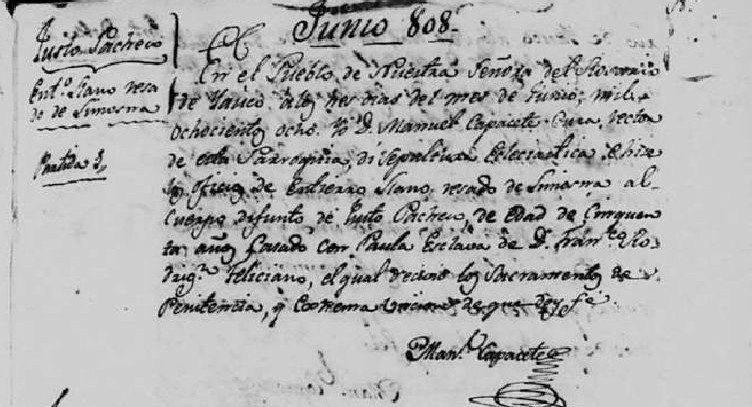 Junio 808.
Justo Pacheco
Ent.o llano reza
do de Limosna
Partida 3,
En el Pueblo de Nuestra Señora del Rosario
de Yauco, a los tres dias del mes de Junio, mil
ochocientos ocho. Yo D. Manuel Capacete Cura rector
de esta Parroquia, di Sepultura Eclesiastica e hize
los Oficios de Entierro llano, resado de Limosna al
Cuerpo difunto de Justo Pacheco, de edad de Cinquen
ta años Casado con Paula Esclava de D. Fran.co Ro
drig.z Feliciano, el qual recivió los Sacramentos de
Penitencia, y Extrema uncion de que doy fe.
Man.l Capacete